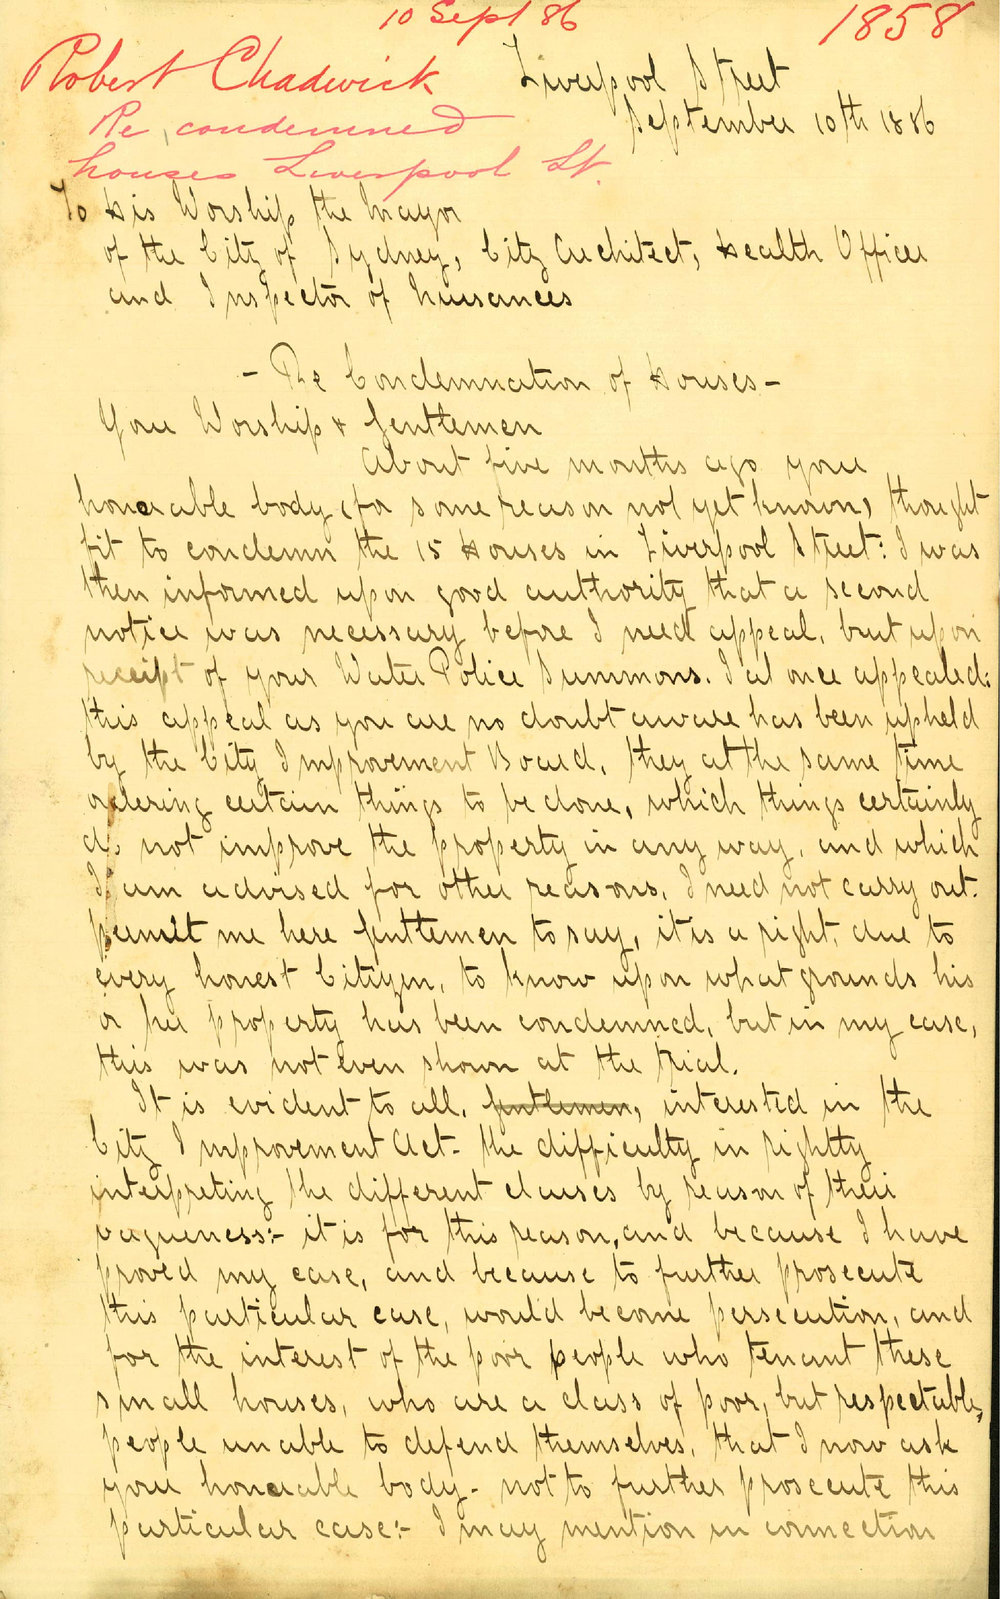 10 Sept 86
1858
Robert Chadwick
Re, condemned
houses Liverpool St.
Liverpool Street
September 10th 1886
To His Worship the Mayor
of the City of Sydney, City Architect, Health Officer
and Inspector of Nuisances
- The Condemnation of Houses -
Your Worship & Gentlemen
About five months ago your
honorable body (for some reason not yet known) thought
fit to condemn the 15 Houses in Liverpool Street: I was
then informed upon good authority that a second
notice was necessary before I need appeal, but upon
receipt of your Water Police Summons. I at once appealed:
this appeal as you are no doubt aware has been upheld
by the City Improvement Board, they at the same time
ordering certain things to be done, which things certainly
do not improve the property in any way, and which
I am advised for other reasons, I need not carry out.
Permit me here Gentlemen to say, it is a right, due to
every honest Citizen, to know upon what grounds his
or her property has been condemned, but in my case,
this was not even shown at the trial.
It is evident to all, gentlemen, interested in the
City Improvement Act - the difficulty in rightly
interpreting the different clauses by reason of their
vagueness:- it is for this reason, and because I have
proved my case, and because to further prosecute
this particular case, would become persecution, and
for the interest of the poor people who tenant these
small houses, who are a class of poor, but respectable,
people unable to defend themselves, that I now ask
your honorable body - not to further prosecute this
particular case:- I may mention in connection